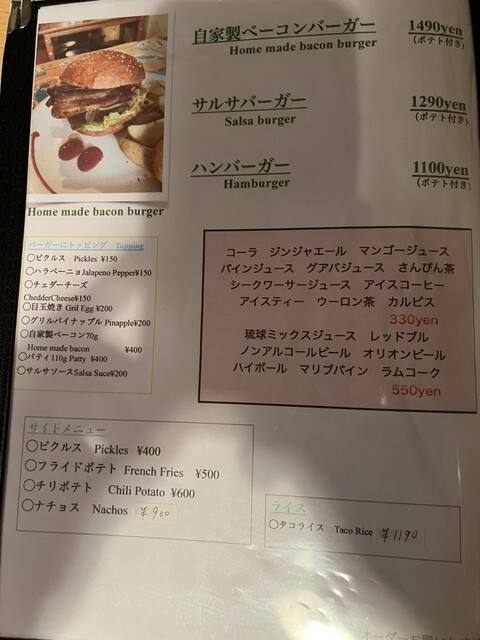 自家製ベーコンバーガー 1490yen
Home made bacon burger (ポテト付き)
サルサバーガー 1290yen
Salsa burger (ポテト付き)
ハンバーガー 1100yen
Hamburger (ポテト付き)
Home made bacon burger
バーガーにトッピング Topping
〇ピクルス Pickles ¥150
〇ハラペーニョJalapeno Pepper¥150
〇チェダーチーズ
ChedderCheese¥150
〇目玉焼き Gril Egg ¥200
〇グリルパイナップル Pinapple¥200
〇自家製ベーコン70g
Home made bacon ¥400
〇パティ110g Patty ¥400
〇サルサソースSalsa Suce¥200
コーラ ジンジャエール マンゴージュース
パインジュース グアバジュース さんぴん茶
シークワーサージュース アイスコーヒー
アイスティー ウーロン茶 カルピス
330yen
琉球ミックスジュース レッドブル
ノンアルコールビール オリオンビール
ハイボール マリブパイン ラムコーク
550yen
サイドメニュー
〇ピクルス Pickles ¥400
〇フライドポテト French Fries ¥500
〇チリポテト Chili Potato ¥600
〇ナチョス Nachos ¥900
ライス
〇タコライス Taco Rice ¥1190